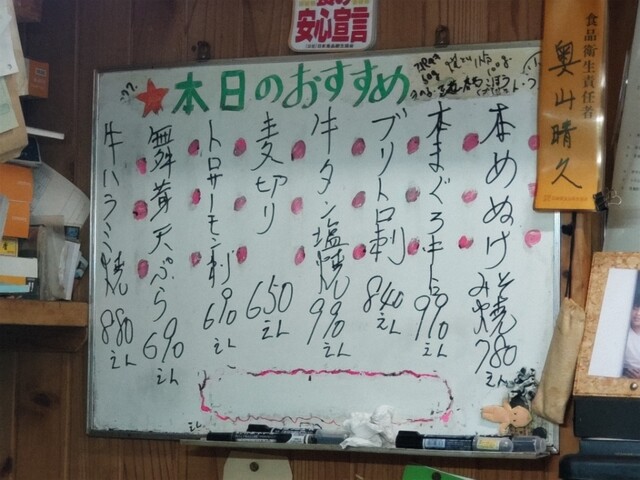 安心宣言
★本日のおすすめ
本めぬけみそ焼 780えん
本まぐろ中トロ 990
ブリトロ刺 840えん
牛タン塩焼 990えん
麦切り 650えん
トロサーモン刺 690えん
舞茸天ぷら 690えん
牛ハラミ焼 880えん
食品衛生責任者
奥山晴久